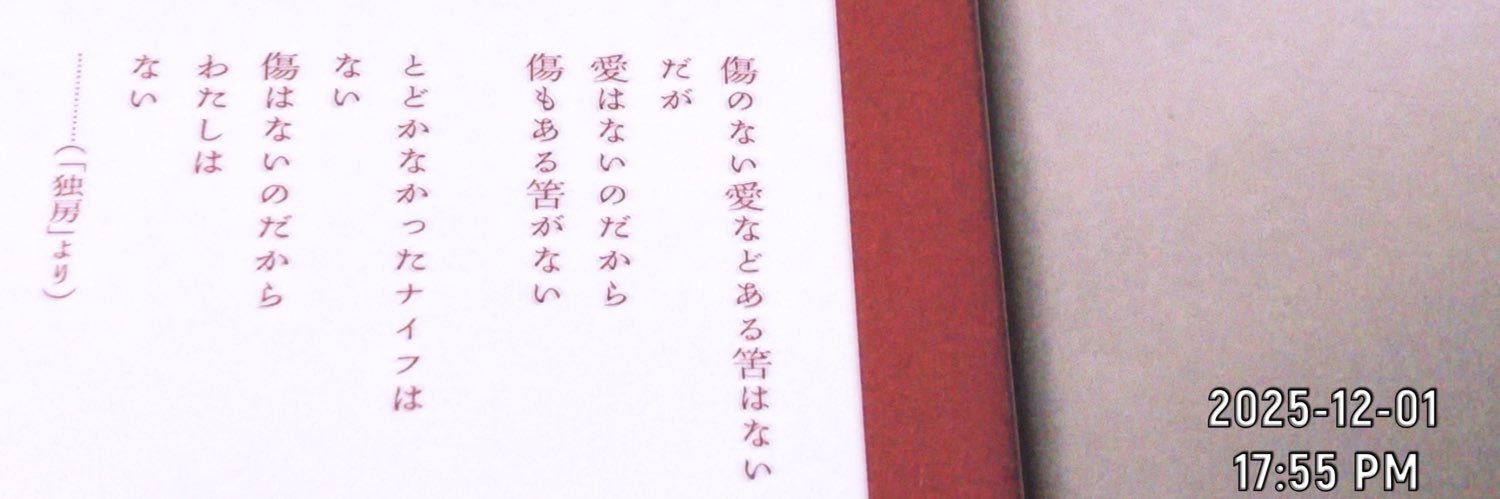 傷のない愛などある筈はない
だが
愛はないのだから
傷もある筈がない
とどかなかったナイフは
ない
傷はないのだから
わたしは
ない
…………(「独房」より)
2025-12-01
17:55 PM